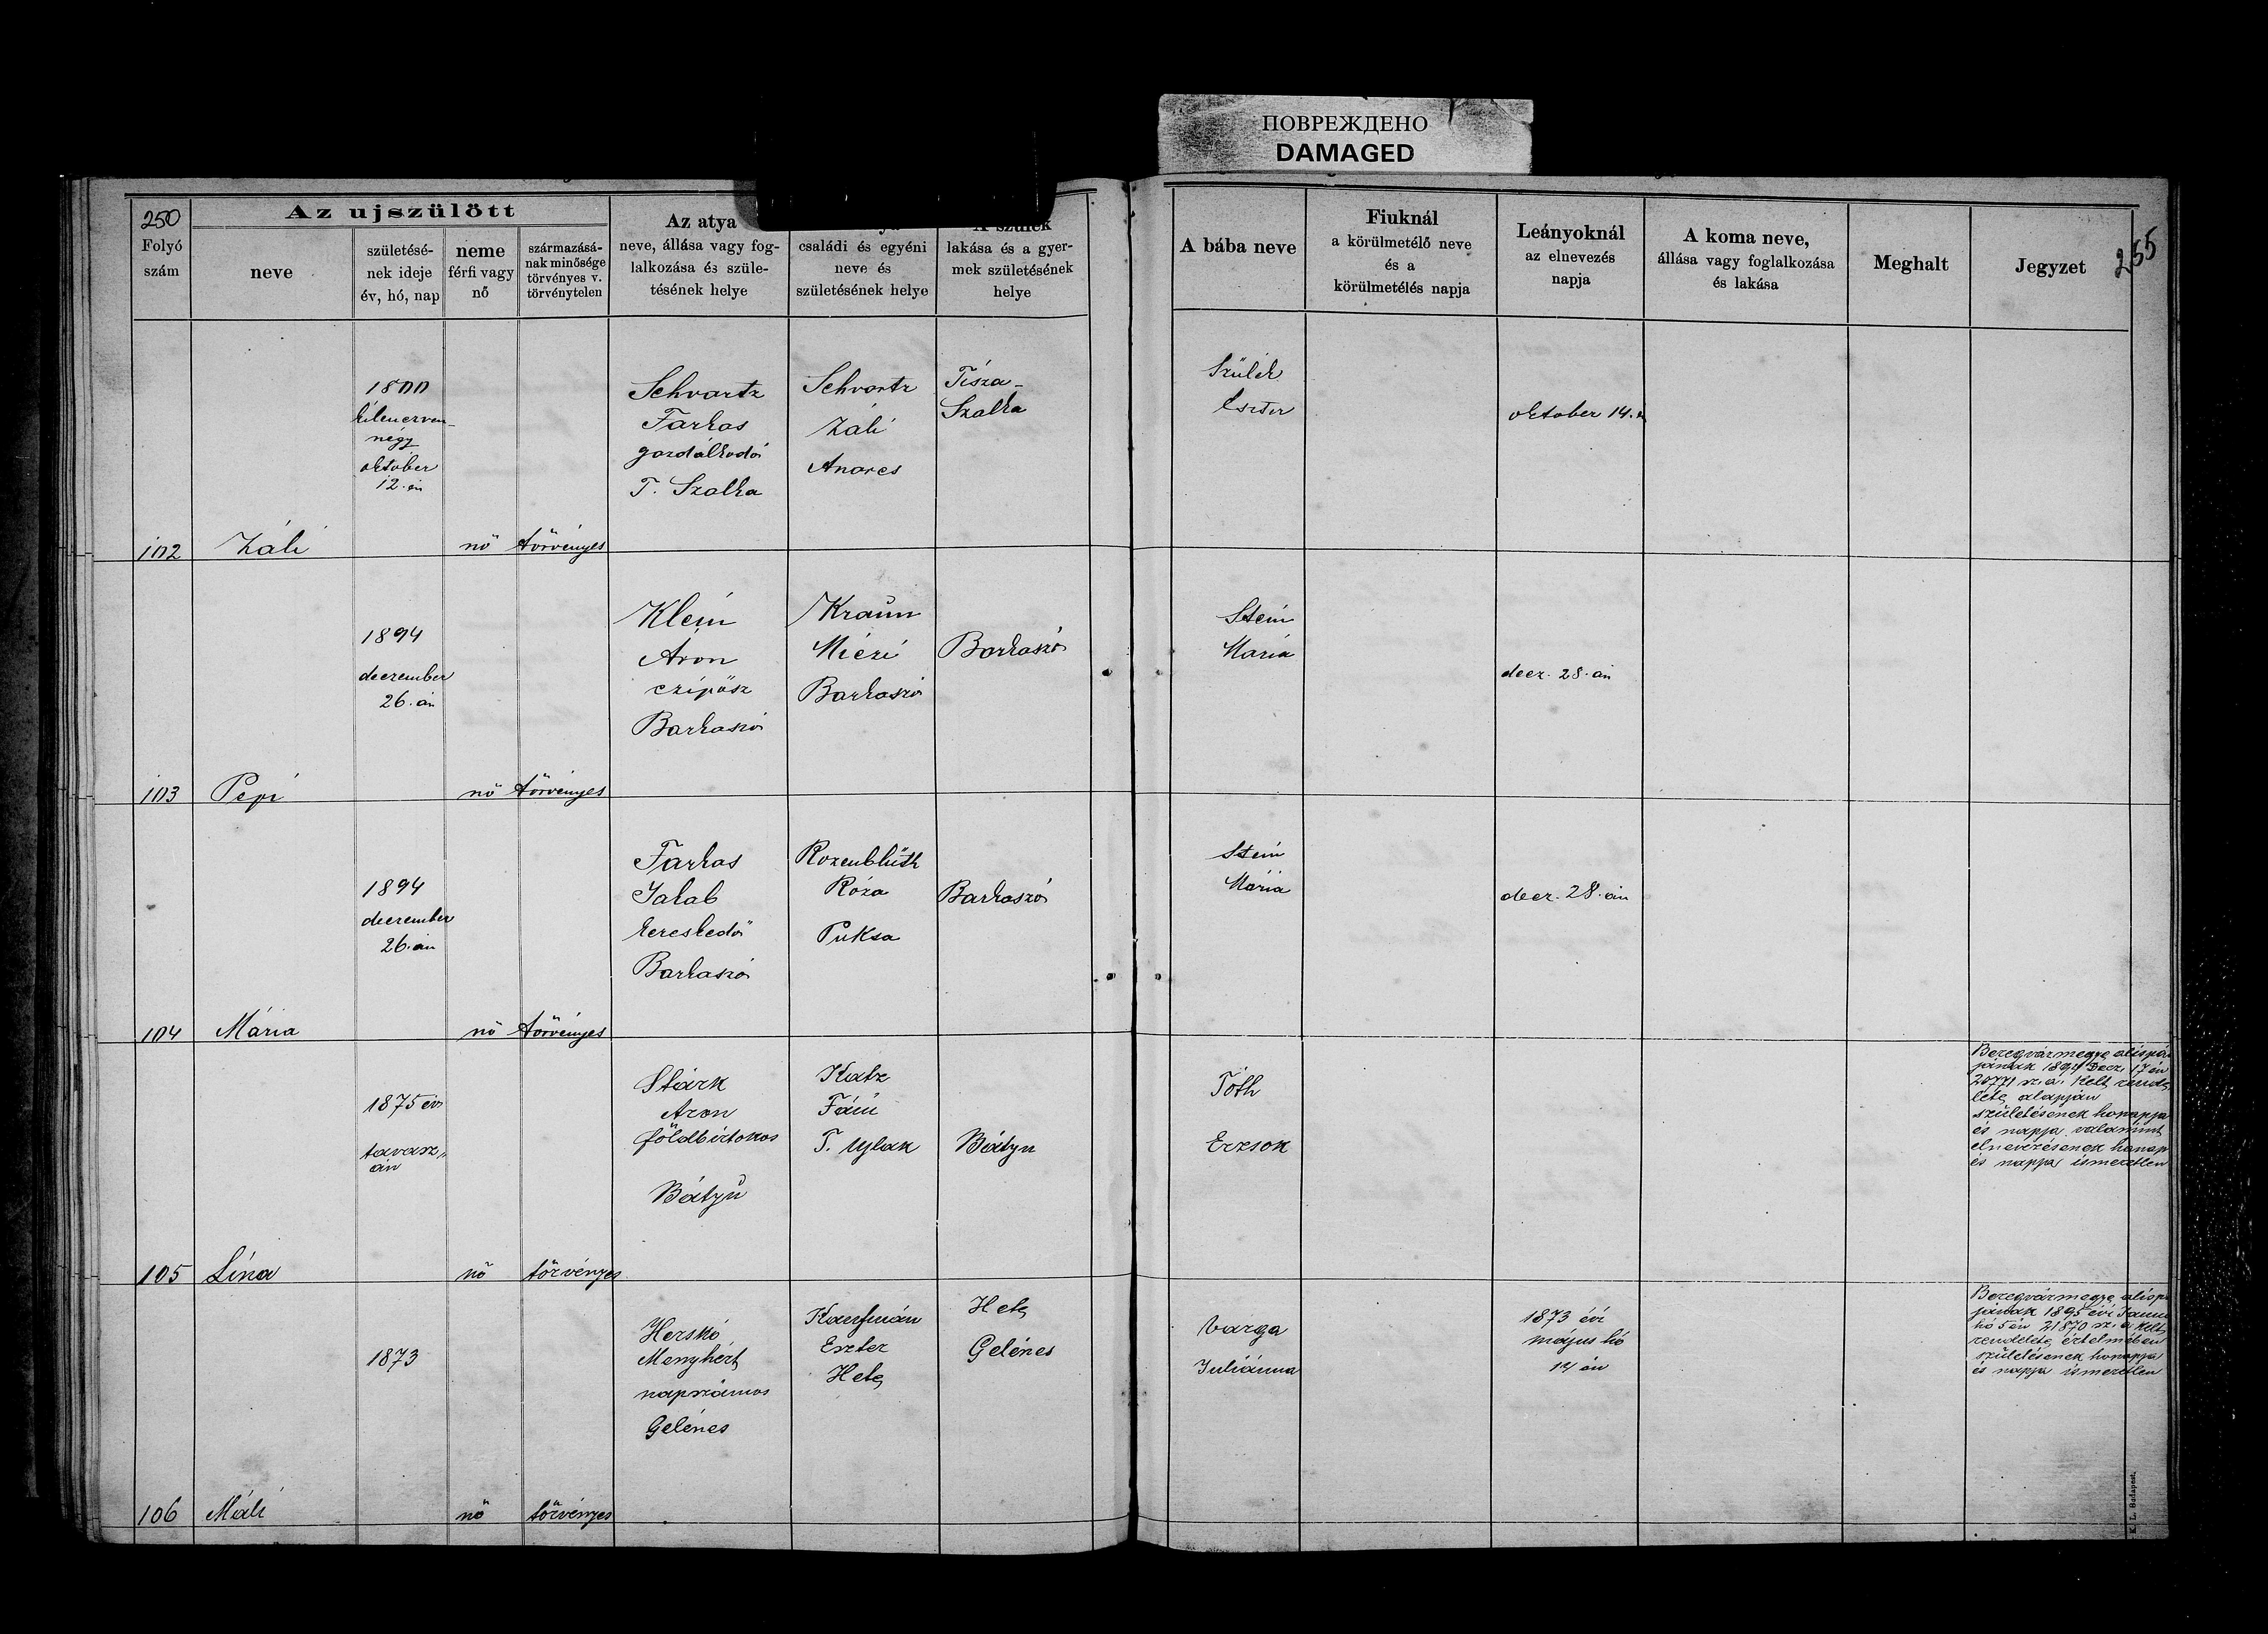 ПОВРЕЖДЕНО
DAMAGED
250
Folyó
szám
Az ujszülött
neve
születésé-
nek ideje
év, hó, nap
neme
férfi vagy
nő
származásá-
nak minősége
törvényes v.
törvénytelen
Az atya
neve, állása vagy fog-
lalkozása és szüle-
tésének helye
családi és egyéni
neve és
születésének helye
A szülék
lakása és a gyer-
mek születésének
helye
A bába neve
Fiuknál
a körülmetélő neve
és a
körülmetélés napja
Leányoknál
az elnevezés
napja
A koma neve,
állása vagy foglalkozása
és lakása
Meghalt
Jegyzet
255
102
Záli
1800
kilenczven-
négy
október
12.-én
nő
törvényes
Schvartz
Farkas
gazdálkodó
T. Szalka
Schvartz
Záli
Anarcs
Tisza-
Szalka
Szülék
Eszter
oktober 14.
103
Pepi
1894
deczember
26.-án
nő
törvényes
Klein
Áron
czipősz
Barkaszó
Kraun
Miczi
Barkaszó
Barkaszó
Stein
Mária
decz. 28.-án
104
Mária
1894
deczember
26.-án
nő
törvényes
Farkas
Jakab
kereskedő
Barkaszó
Rozenblüth
Róza
Puksa
Barkaszó
Stein
Mária
decz. 28.-án
105
Lina
1875 év
tavasz„
án
nő
törvényes
Stárk
Aron
földbirtokos
Bátyu
Katz
Fáni
T. Ujlak
Bátyu
Tóth
Erzsok
Beregvármegye alispán
jának 1894 Decz. 17 én
20771 sz. a. kelt rende
lete alapján
születésenek honapja
és napja valamint
elnevezésenek honap
és napja ismeretlen
106
Máli
1873
nő
törvényes
Herskó
Menyhért
napszámos
Gelénes
Kaufmán
Eszter
Hete
Hete
Gelénes
Varga
Juliánna
1873 évi
május hó
14 én
Beregvármegye alisp
jának 1895 évi Janu
hó 5 én 21870 sz. a kelt
rendelete értelmében
születésenek honapja
és napja ismeretlen
K. L. Budapest.